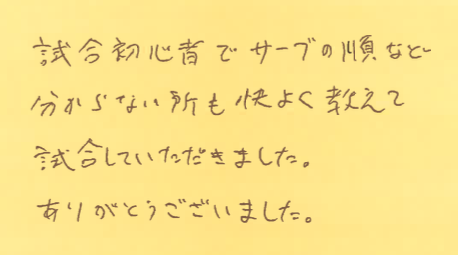 試合初心者でサーブの順など
分からない所も快よく教えて
試合していただきました。
ありがとうございました。